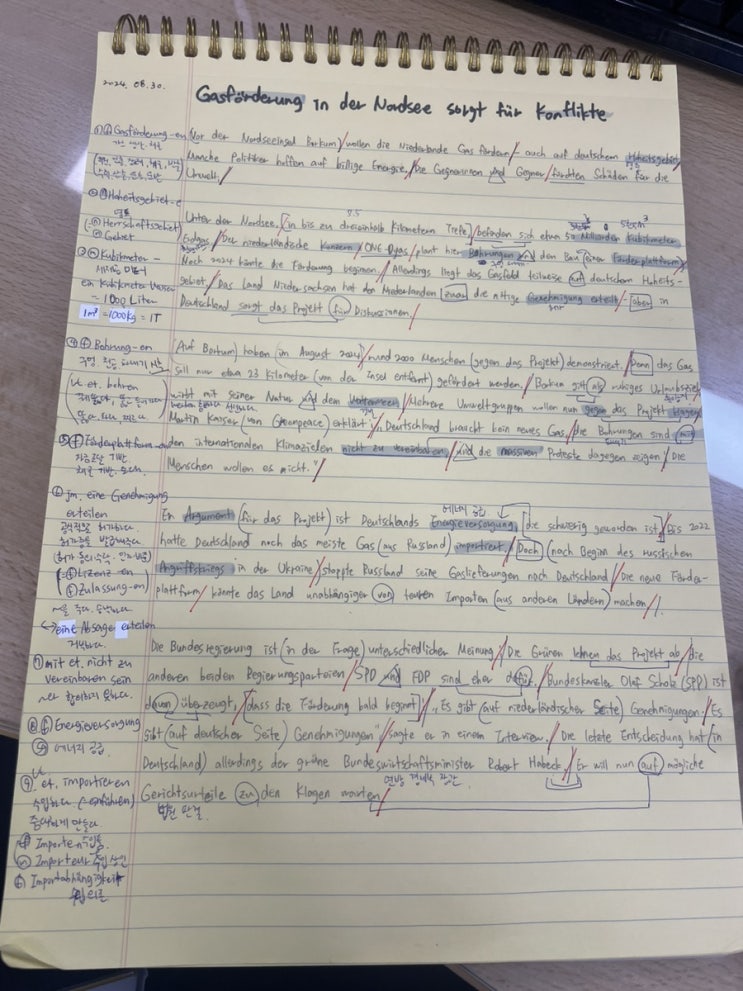 2024. 08. 30.
Gasförderung in der Nordsee sorgt für Konflikte
Vor der Nordseeinsel Borkum/wollen die Niederlande Gas fördern/– auch auf deutschem Hoheitsgebiet/
Manche Politiker hoffen auf billige Energie./Die Gegnerinnen und Gegner/fürchten Schäden für die
Umwelt./
Unter der Nordsee,(in bis zu dreieinhalb Kilometern Tiefe)/befinden sich etwa 50 Milliarden Kubikmeter
3,5
Erdgas./Der niederländische Konzern/ONE-Dyas/plant hier Bohrungen und den Bau einer Förderplattform/
Noch 2024 könnte die Förderung beginnen./Allerdings liegt das Gasfeld teilweise auf deutschem Hoheits-
gebiet./Das Land Niedersachsen hat den Niederlanden zwar die nötige Genehmigung erteilt/– aber in
Deutschland sorgt das Projekt für Diskussionen./
(Auf Borkum) haben (im August 2024)/rund 2000 Menschen (gegen das Projekt) demonstriert./Denn das Gas
soll nur etwa 23 Kilometer (von der Insel entfernt) gefördert werden./Borkum gilt als ruhiges Urlaubsziel
wirbt mit seiner Natur und dem Wattenmeer/Mehrere Umweltgruppen wollen nun gegen das Projekt klagen/
Martin Kaiser (von Greenpeace) erklärt:/„Deutschland braucht kein neues Gas,/die Bohrungen sind mit
den internationalen Klimazielen nicht zu vereinbaren/und die massiven Proteste dagegen zeigen:/Die
Menschen wollen es nicht."/
Ein Argument (für das Projekt) ist Deutschlands Energieversorgung,[die schwierig geworden ist]/Bis 2022
에너지 공급
hatte Deutschland noch das meiste Gas (aus Russland) importiert./Doch (nach Beginn des russischen
Angriffskriegs in der Ukraine)/stoppte Russland seine Gaslieferungen nach Deutschland/Die neue Förder-
plattform/könnte das Land unabhängiger von teuren Importen (aus anderen Ländern) machen/.
Die Bundesregierung ist (in der Frage) unterschiedlicher Meinung:/Die Grünen lehnen das Projekt ab,/die
anderen beiden Regierungsparteien/SPD und FDP sind eher dafür./Bundeskanzler Olaf Scholz (SPD) ist
davon überzeugt,/[dass die Förderung bald beginnt]/„Es gibt (auf niederländischer Seite) Genehmigungen./Es
gibt (auf deutscher Seite) Genehmigungen"/sagte er in einem Interview./Die letzte Entscheidung hat (in
Deutschland) allerdings der grüne Bundeswirtschaftsminister Robert Habeck./Er will nun auf mögliche
Gerichtsurteile zu den Klagen warten/
법원 판결.
① ⓕ Gasförderung -en
② ⓝ Hoheitsgebiet -e
영토
(=ⓝ Herrschaftsgebiet)
ⓝ Gebiet
③ ⓜ Kubikmeter -
세제곱 미터
ein Kubikmeter Wasser
= 1000 Liter
1m³ = 1000kg = 1T
④ ⓕ Bohrung -en
Vt. et. bohren
⑤ ⓕ Förderplattform -en
⑥ jm. eine Genehmigung
erteilen
(=ⓕ Lizenz -en)
ⓕ Zulassung -en)
↔ eine Absage erteilen
거절하다.
⑦ mit et. nicht zu
vereinbaren sein
⑧ ⓕ Energieversorgung
에너지 공급
Vt.
⑨ et. importieren
수입하다 (↔ exportieren)
ⓜ Importeur 수입 상인
ⓕ Importabhängigkeit
수입 의존